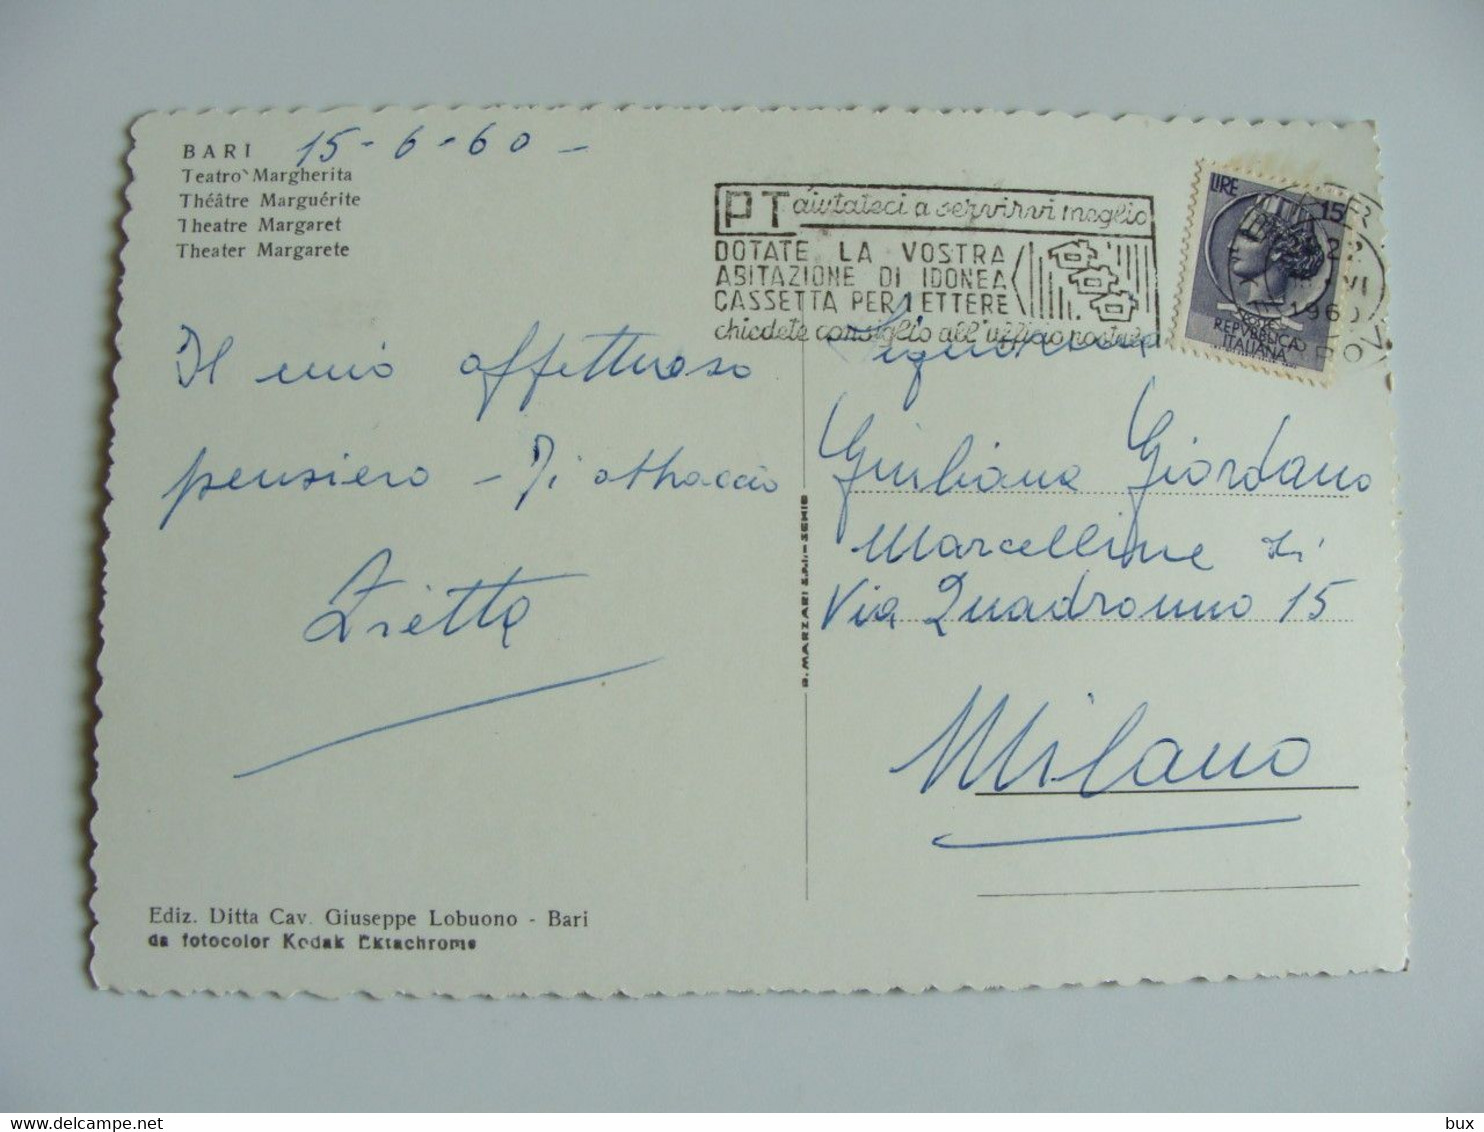 BARI 15-6-60-
Teatro Margherita
Théâtre Marguérite
Theatre Margaret
Theater Margarete
Il mio affettuoso
pensiero - Ti abbraccio
Zietta
Ediz. Ditta Cav. Giuseppe Lobuono - Bari
da fotocolor Kodak Ektachrome
S.MARZARI S.P.I.-SCHIO
PT aiutateci a servirvi meglio
DOTATE LA VOSTRA
ABITAZIONE DI IDONEA
CASSETTA PER LETTERE
chiedete consiglio all'ufficio postale
LIRE 15
REPVBBLICA
ITALIANA
VI
1960
Signorina
Giuliana Giordano
Marcelline
Via Quadronno 15
Milano
bux